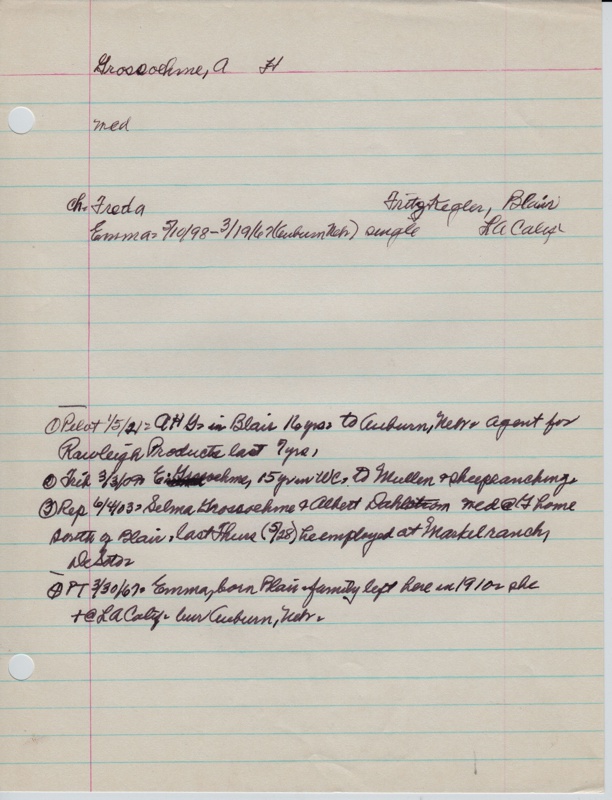 Grossoehme, A H
med
ch. Freda Fritz Kegler, Blair
Emma- 5/10/98-3/19/67 (Auburn Nebr) single LA Calif
① Pilot 1/5/21= AHG- in Blair 16 yrs- to Auburn, Nebr- agent for
Rawleigh Products last 7 yrs,
② Trib 3/3/07= E. Grossoehme, 15 yrs in WC, to Mullen & sheepranching.
③ Rep 6/4/03= Selma Grossoehme & Albert Dahlstrom med @ G home
south of Blair, last Thurs (5/28) he employed at Markel ranch,
DeSoto
④ PT 3/30/67= Emma, born Blair-family left here in 1910- she
+@ LA Calif- bur Auburn, Nebr.